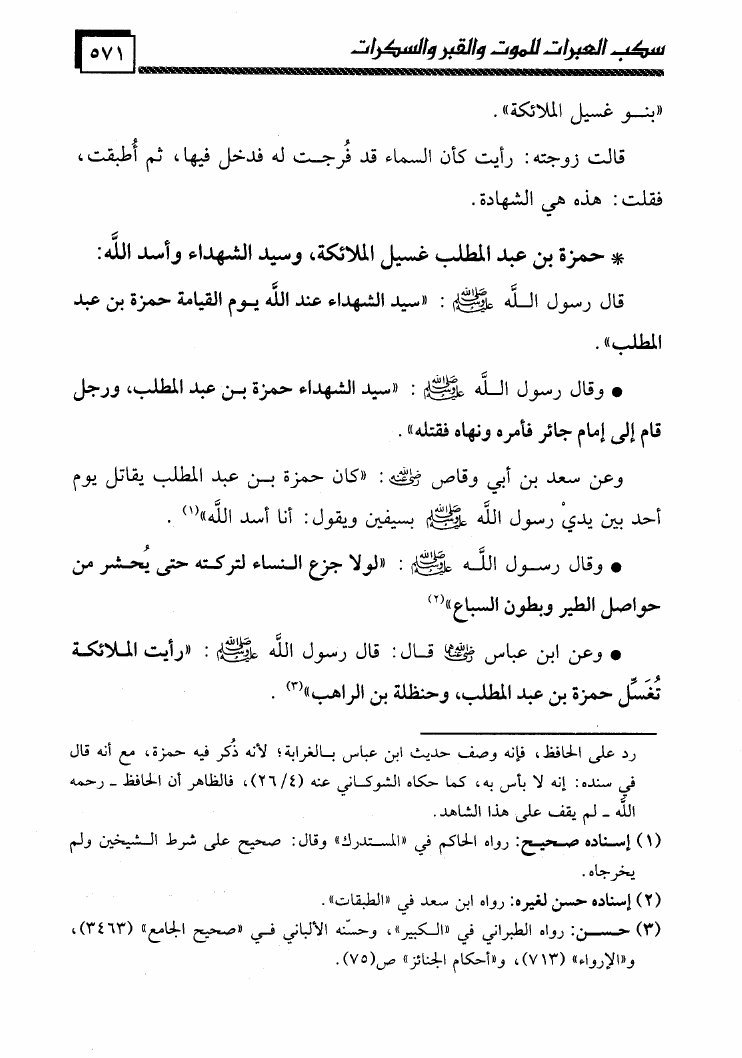 سكب العبرات للموت والقبر والسكرات
٥٧١
«بنو غسيل الملائكة».
قالت زوجته: رأيت كأن السماء قد فُرجت له فدخل فيها، ثم أُطبقت،
فقلت: هذه هي الشهادة.
* حمزة بن عبد المطلب غسيل الملائكة، وسيد الشهداء وأسد اللَّه:
قال رسول اللَّه ﷺ: «سيد الشهداء عند اللَّه يوم القيامة حمزة بن عبد
المطلب».
● وقال رسول اللَّه ﷺ: «سيد الشهداء حمزة بن عبد المطلب، ورجل
قام إلى إمام جائر فأمره ونهاه فقتله».
وعن سعد بن أبي وقاص رضي الله عنه: «كان حمزة بن عبد المطلب يقاتل يوم
أحد بين يديْ رسول اللَّه ﷺ بسيفين ويقول: أنا أسد اللَّه»(١).
● وقال رسول اللَّه ﷺ: «لولا جزع النساء لتركته حتى يُحشر من
حواصل الطير وبطون السباع»(٢)
● وعن ابن عباس رضي الله عنهما قال: قال رسول اللَّه ﷺ: «رأيت الملائكة
تُغَسِّل حمزة بن عبد المطلب، وحنظلة بن الراهب»(٣).
رد على الحافظ، فإنه وصف حديث ابن عباس بالغرابة؛ لأنه ذُكر فيه حمزة، مع أنه قال
في سنده: إنه لا بأس به، كما حكاه الشوكاني عنه (٢٦/٤)، فالظاهر أن الحافظ ـ رحمه
اللَّه ـ لم يقف على هذا الشاهد.
(١) إسناده صحيح: رواه الحاكم في «المستدرك» وقال: صحيح على شرط الشيخين ولم
يخرجاه.
(٢) إسناده حسن لغيره: رواه ابن سعد في «الطبقات».
(٣) حسن: رواه الطبراني في «الكبير»، وحسّنه الألباني في «صحيح الجامع» (٣٤٦٣)،
و«الإرواء» (٧١٣)، و«أحكام الجنائز» ص(٧٥).